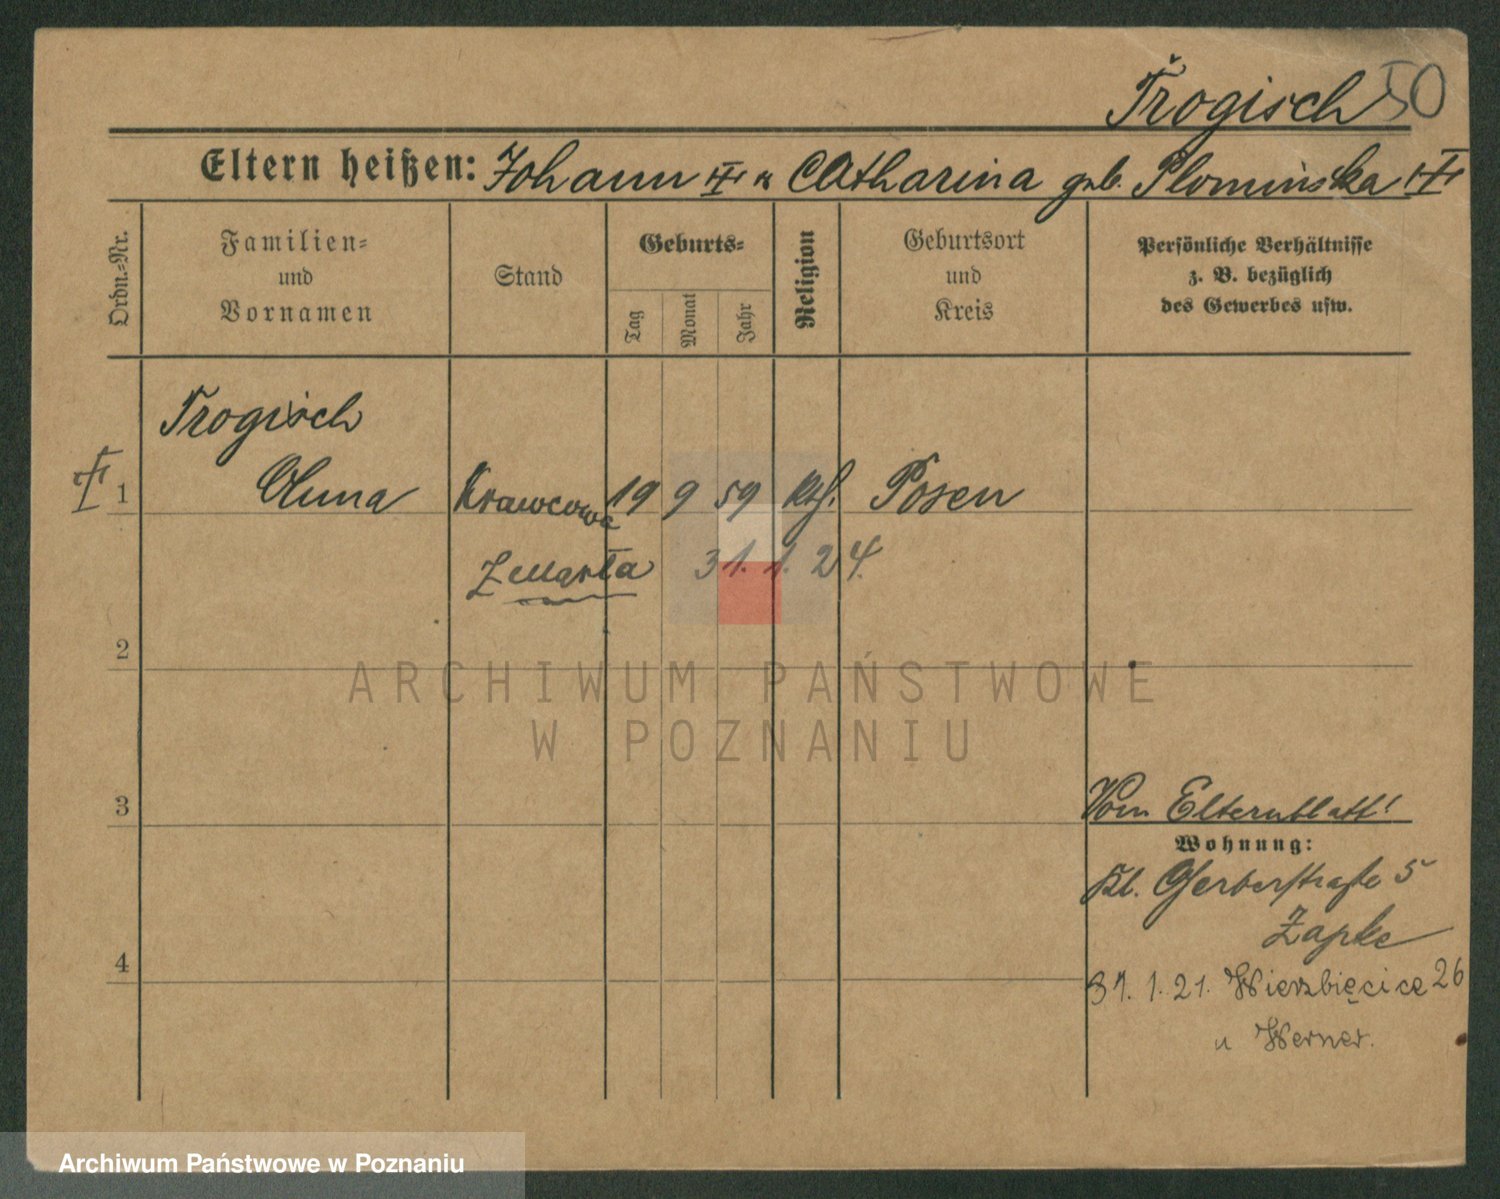 Trogisch 50
Eltern heißen: Johann u Catharina geb. Plominska
Ordn.=Nr.
Familien=
und
Vornamen
Stand
Geburts=
Tag
Monat
Jahr
Religion
Geburtsort
und
Kreis
Persönliche Verhältnisse
z. B. bezüglich
des Gewerbes usw.
Trogisch
1 Anna Krawcowa 19 9 59 kth. Posen
Zmarła 31. 1. 24.
2
ARCHIWUM PAŃSTWOWE
W POZNANIU
3
Vom Elternblatt!
Wohnung:
Kl. Gerberstraße 5
Zapke
4
31. 1. 21. Wierzbięcice 26
u Werner.
Archiwum Państwowe w Poznaniu